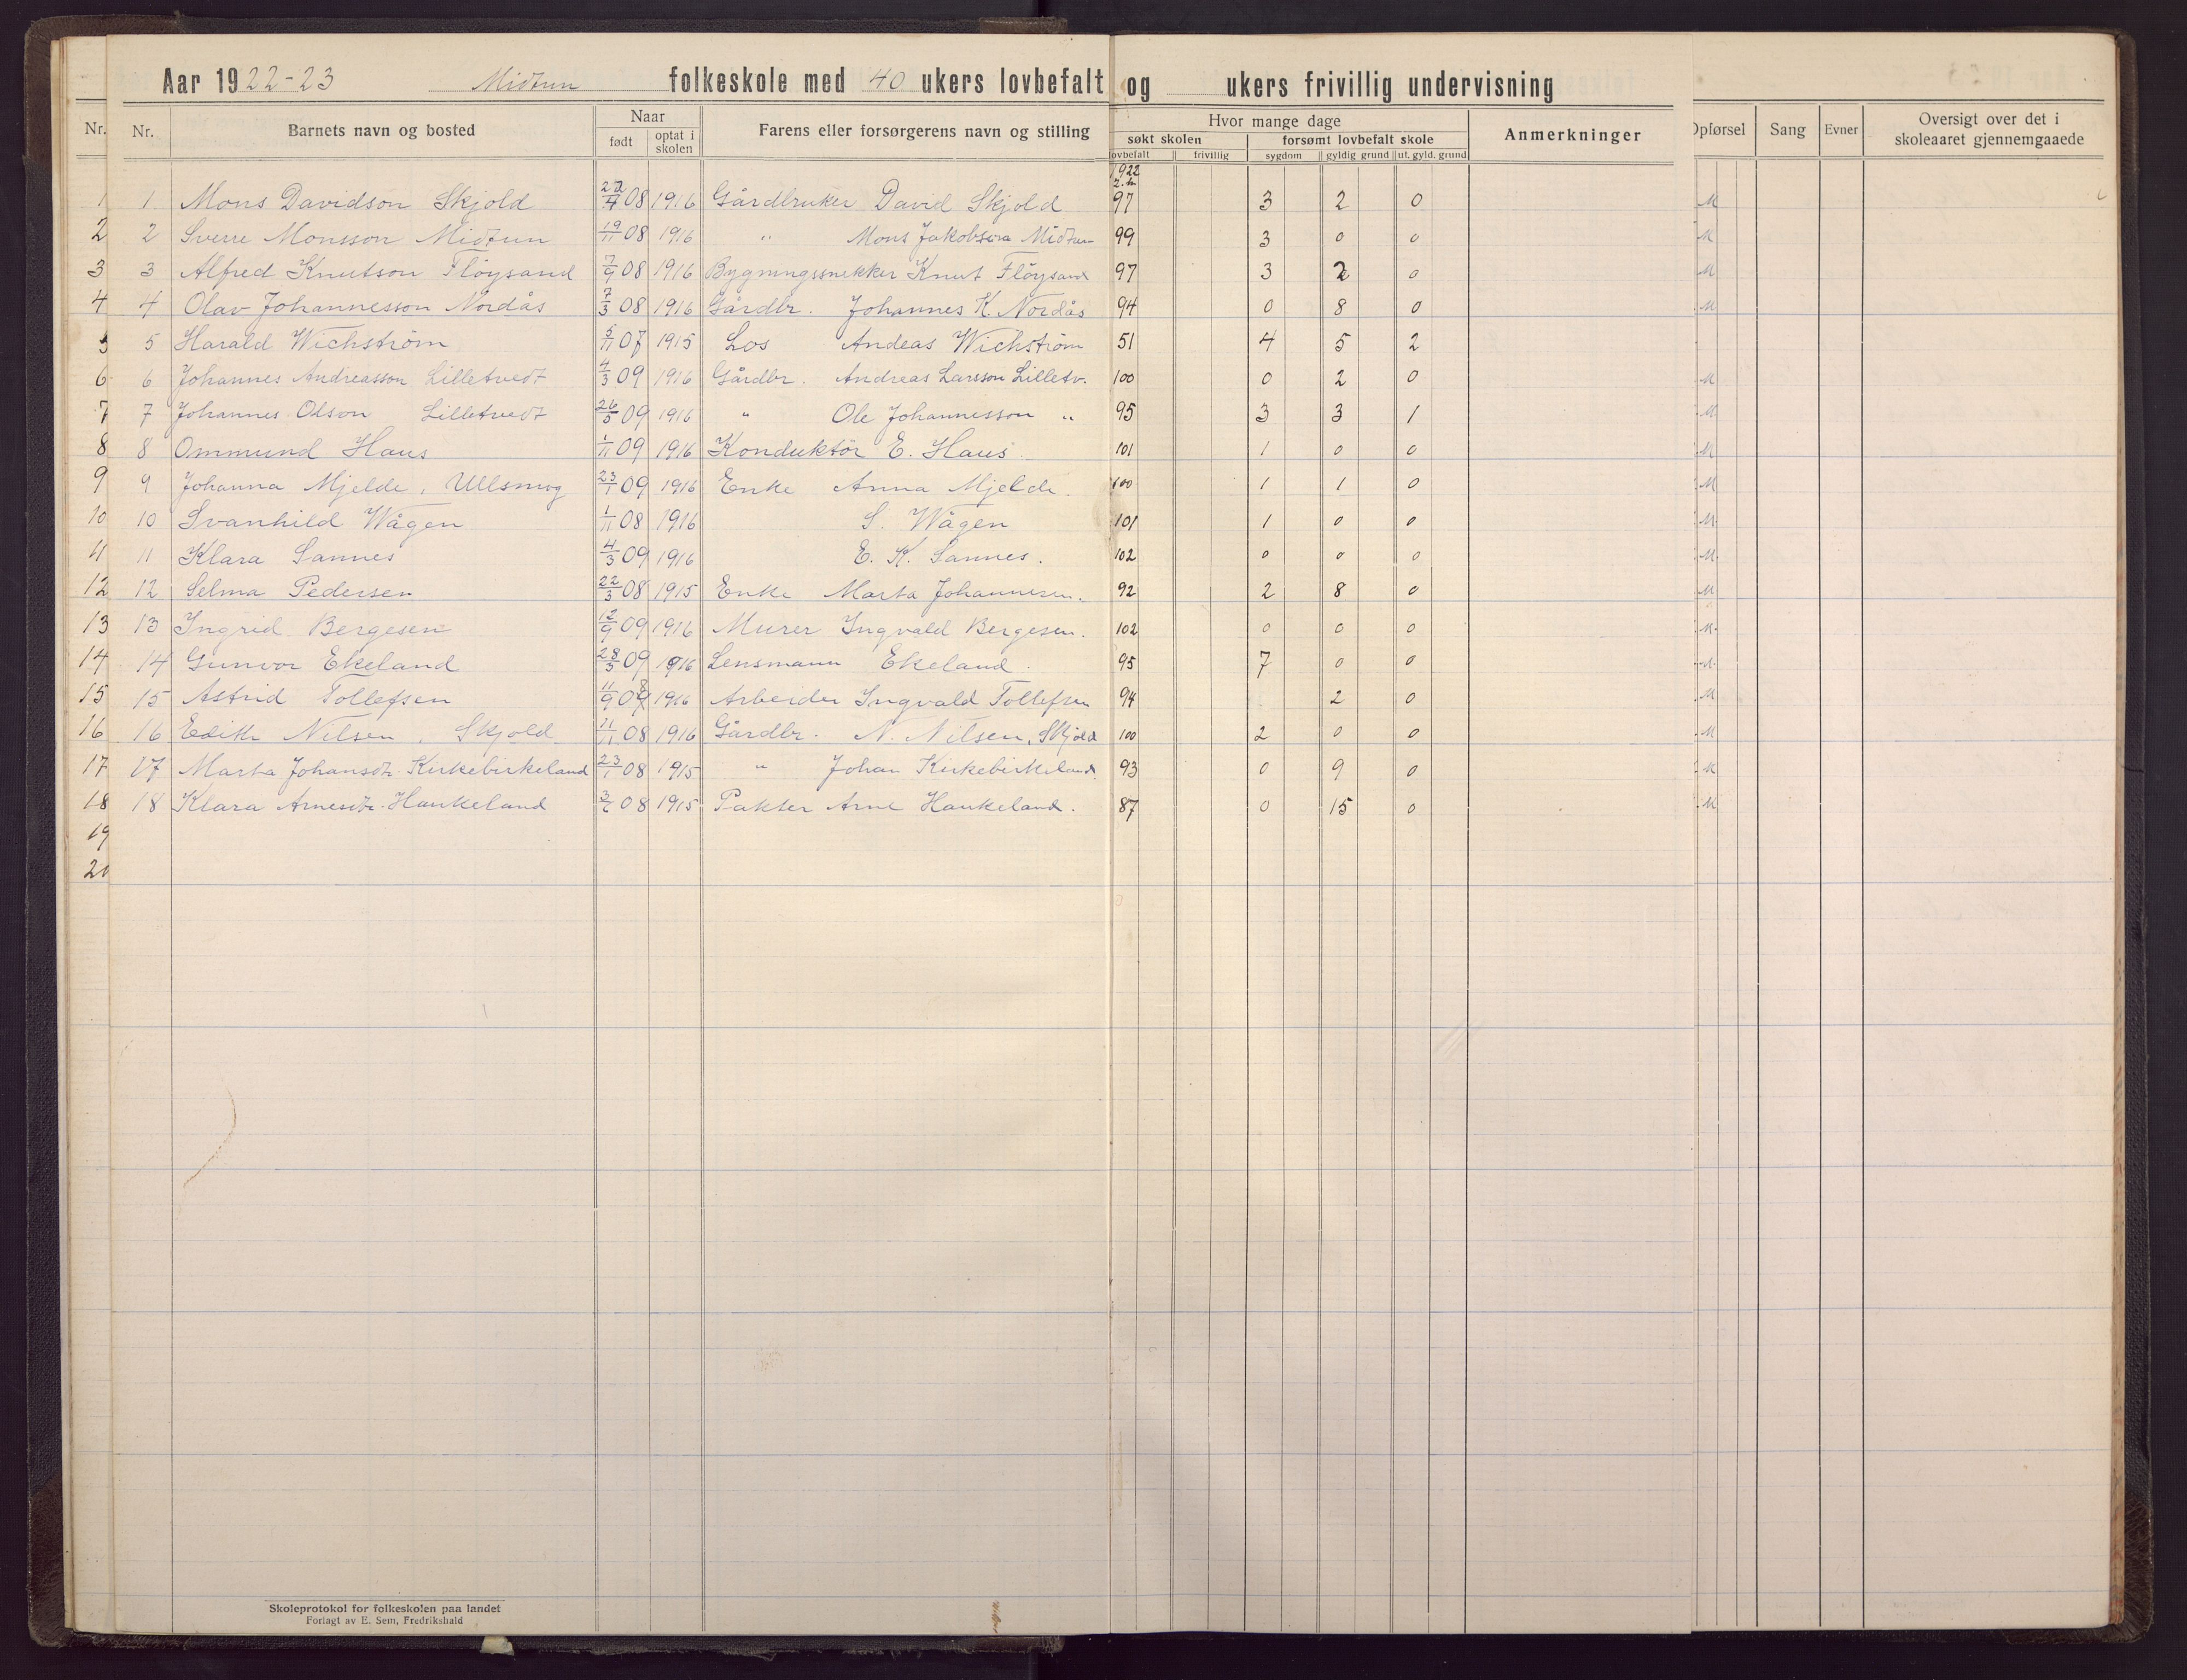 Aar 1922-23 Midtun folkeskole med 40 ukers lovbefalt og ukers frivillig undervisning
Nr. Nr. Barnets navn og bosted Naar født optat i skolen Farens eller forsørgerens navn og stilling Hvor mange dage søkt skolen lovbefalt frivillig forsømt lovbefalt skole sygdom gyldig grund ut. gyld. grund Anmerkninger Opførsel Sang Evner Oversigt over det i skoleaaret gjennemgaaede
1922
1 1 Mons Davidson Skjold 22/4 08 1916 Gårdbruker David Skjold 97 3 2 0 M
2 2 Sverre Monsson Midtun 19/11 08 1916 " Mons Jakobsson Midtun 99 3 0 0 M
3 3 Alfred Knutson Fløysand 7/9 08 1916 Bygningssnekker Knut Fløysand 97 3 2 0 M
4 4 Olav Johannesson Nordås 7/3 08 1916 Gårdbr. Johannes K. Nordås 94 0 8 0 M
5 5 Harald Wichstrøm 5/11 07 1915 Los Andeas Wichstrøm 51 4 5 2
6 6 Johannes Andreasson Lilletvedt 4/3 09 1916 Gårdbr. Andreas Larsson Lilletv. 100 0 2 0 M
7 7 Johannes Olson Lilletvedt 26/5 09 1916 " Ole Johannesson " 95 3 3 1 M
8 8 Ommund Haus 1/11 09 1916 Konduktør E. Haus 101 1 0 0 M
9 9 Johanna Mjelde, Ullsmog 23/1 09 1916 Enke Anna Mjelde. 100 1 1 0 M
10 10 Svanhild Wågen 1/11 08 1916 S. Wågen 101 1 0 0 M
11 11 Klara Sannes 4/3 09 1916 E. K. Sannes. 102 0 0 0 M
12 12 Selma Pedersen 22/3 08 1915 Enke Marta Johannesen. 92 2 8 0 M
13 13 Ingrid Bergesen 12/9 09 1916 Murer Ingvald Bergesen. 102 0 0 0 M
14 14 Gunvor Ekeland 28/3 09 1916 Lensmann Ekeland. 95 7 0 0
15 15 Astrid Tollefsen 11/9 08 1916 Arbeider Ingvald Tollefsen 94 2 0 M
16 16 Edith Nilsen, Skjold 21/11 08 1916 Gårdbr. N. Nilsen, Skjold 100 2 0 0 M
17 17 Marta Johansdtr. Kirkebirkeland 23/1 08 1915 " Johan Kirkebirkeland. 93 0 9 0 M
18 18 Klara Arnesdtr. Haukeland 08 1915 Pakter Arne Haukeland. 87 0 15 0 M
19
20
Skoleprotokol for folkeskolen paa landet
Forlagt av E. Sem, Fredrikshald